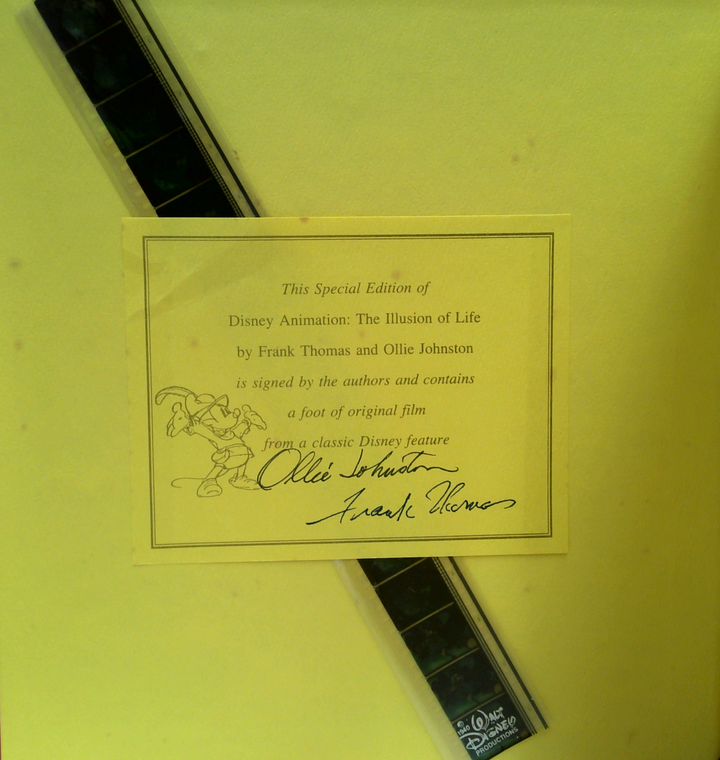 This Special Edition of
Disney Animation: The Illusion of Life
by Frank Thomas and Ollie Johnston
is signed by the authors and contains
a foot of original film
from a classic Disney feature
Ollie Johnston
Frank Thomas
1940 WALT
DISNEY
PRODUCTIONS